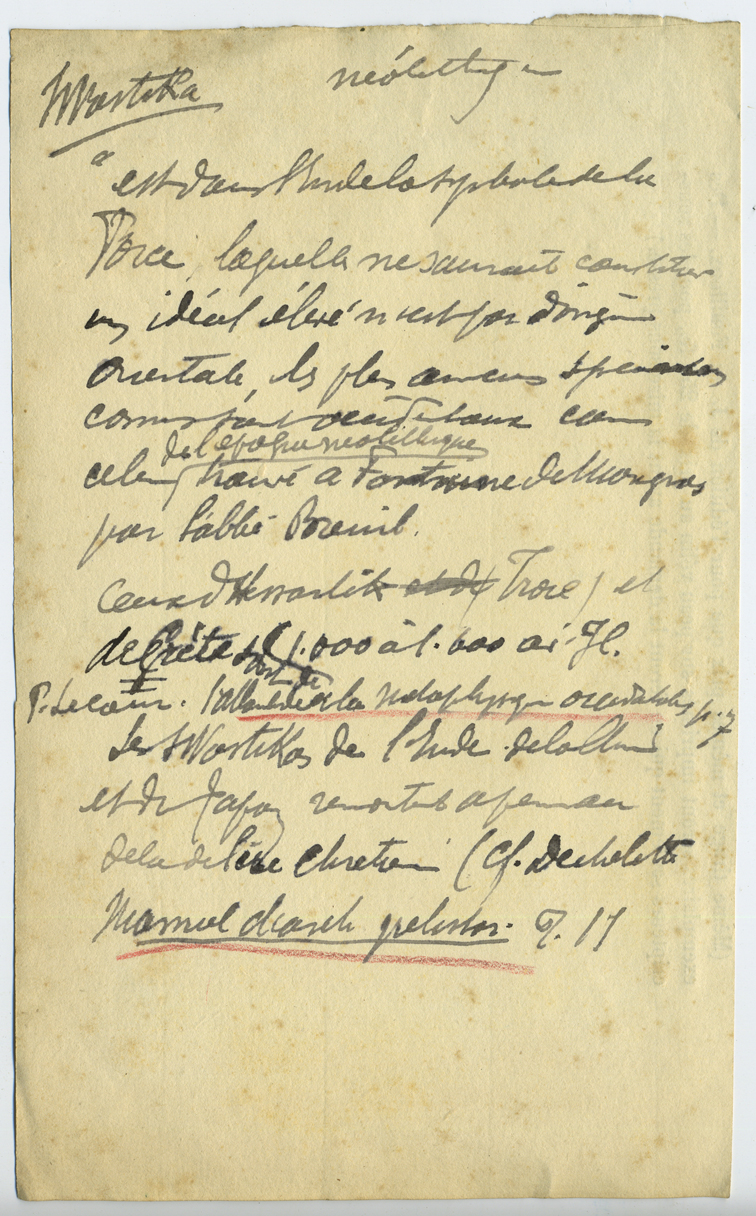 Swastika néolithique
" est dans l'Inde le symbole de la
Force, laquelle ne saurait constituer
un idéal élevé n'est pas d'origine
orientale, les plus anciens specimens
connus sont occidentaux comme
de l'epoque neolithique
celui trouvé à Fontaine de
par l'abbé Breuil.
ceux d'Hissarlik et de (Troie) et
de Crète 1.000 à 1.600 av. JC.
P. Le Cour. à la metaphysique occidentale p. 7
Les Swastikas de l'Inde de la Chine
et du Japon remontent à peine au
dela de l'ère chretienne (Cf. Dechelette
Manuel d'arch prehistor. T. II